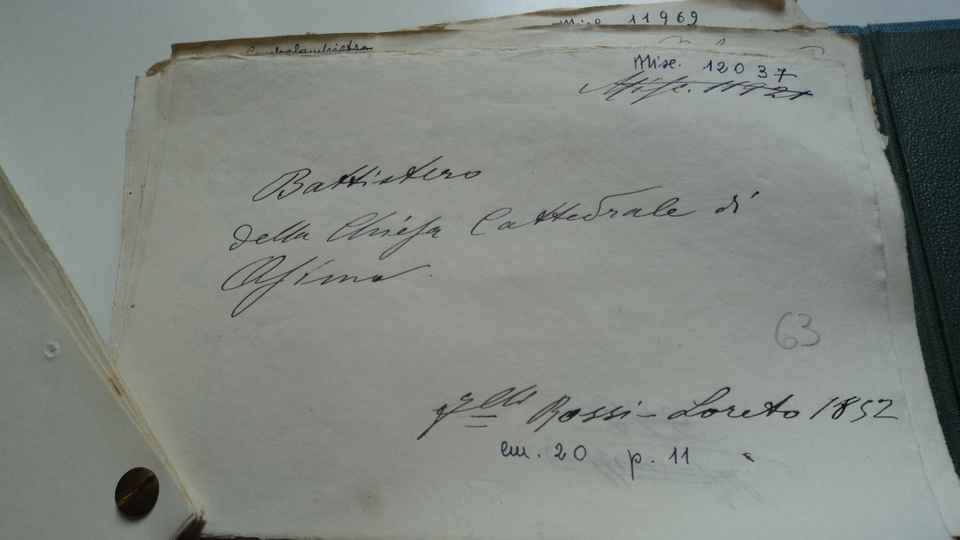 Misc. 11969
Misc. 12037
Battistero
della Chiesa Cattedrale di
Osimo.
63
Rossi - Loreto 1852
em. 20 p. 11 "